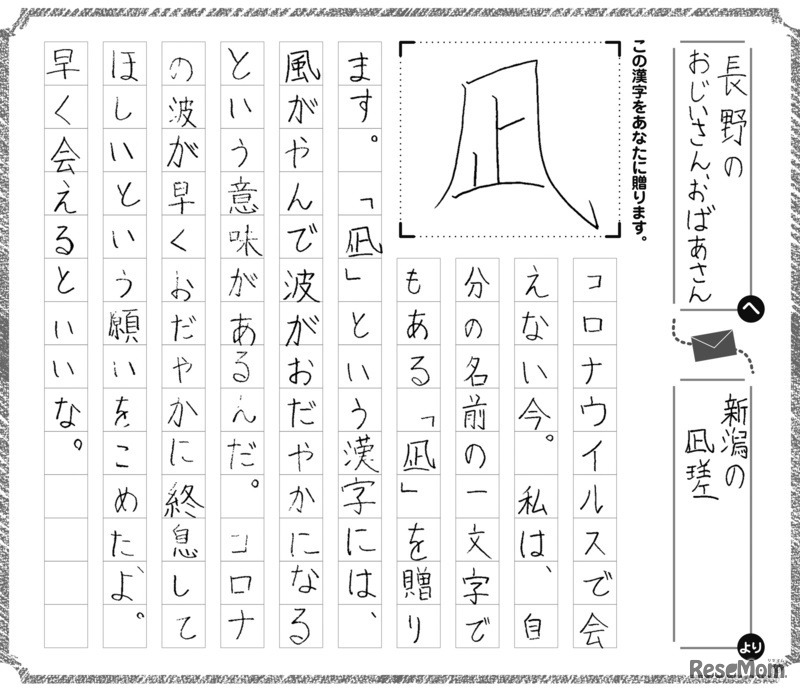 長野の
おじいさん、おばあさん
へ
新潟の
凪瑳
より
この漢字をあなたに贈ります。
凪
コロナウイルスで会
えない今。私は、自
分の名前の一文字で
もある「凪」を贈り
ます。「凪」という漢字には、
風がやんで波がおだやかになる
という意味があるんだ。コロナ
の波が早くおだやかに終息して
ほしいという願いをこめたよ。
早く会えるといいな。
ReseMom
リセマム